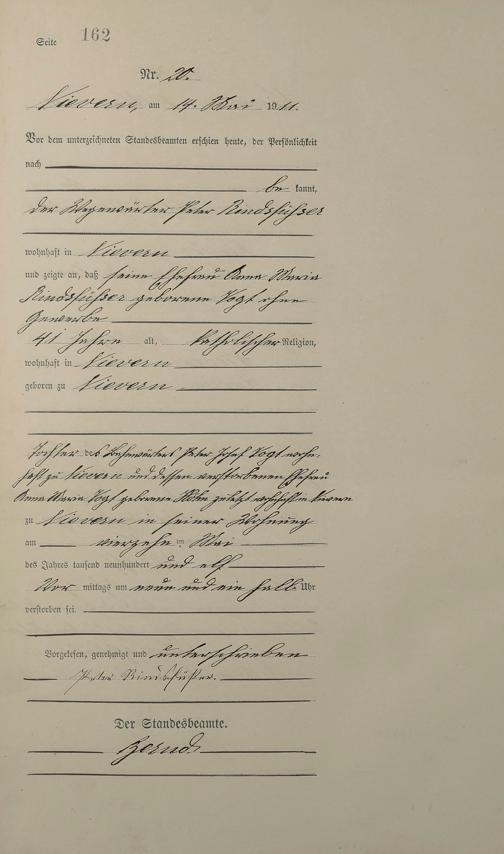 Seite 162
Nr. 20.
Nievern, am 14. Mai 1911.
Vor dem unterzeichneten Standesbeamten erschien heute, der Persönlichkeit
nach
be kannt,
der Wegewärter Peter Rindsfüßer
wohnhaft in Nievern
und zeigte an, daß seine Ehefrau Anna Maria
Rindsfüßer geborene Vogt ohne
Gewerbe
41 Jahre alt, katholischer Religion,
wohnhaft in Nievern
geboren zu Nievern
Tochter des Bahnwärters Peter Josef Vogt wohn-
haft zu Nievern und dessen verstorbenen Ehefrau
Anna Maria Vogt geborene zuletzt wohnhaft in Nievern
zu Nievern in seiner Wohnung
am vierzehn ten Mai
des Jahres tausend neunhundert und elf
Vor mittags um neun und ein halb Uhr
verstorben sei.
Vorgelesen, genehmigt und unterschrieben
Peter Rindsfüßer.
Der Standesbeamte.